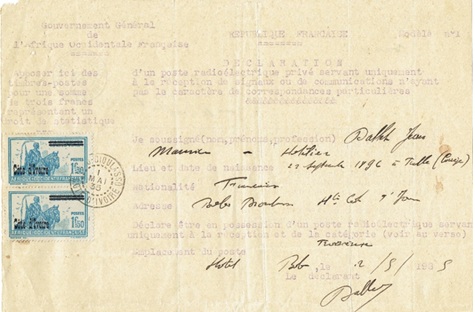 Gouvernement Général
de
l'Afrique Occidentale Française
REPUBLIQUE FRANCAISE
Modèle n°1
DECLARATION
d'un poste radioélectrique privé servant uniquement
à la réception de signaux ou de communications n'ayant
pas le caractère de correspondances particulières
Apposer ici des
timbres-postes
pour une somme
de trois francs
représentant un
droit de statistique
Je soussigné(nom, prénoms, profession) Jean
Hôtelier
Lieu et date de naissance 22 septembre 1896 à
Nationalité
Adresse Hte Côte d'Ivoire
Déclare être en possession d'un poste radioélectrique servant
uniquement à la réception et de la catégorie (voir au verso)
Emplacement du poste
Hôtel Bobo, le 2/5/1935
Le déclarant
POSTES
1f50
Côte d'Ivoire
POSTES
1f50
Côte d'Ivoire